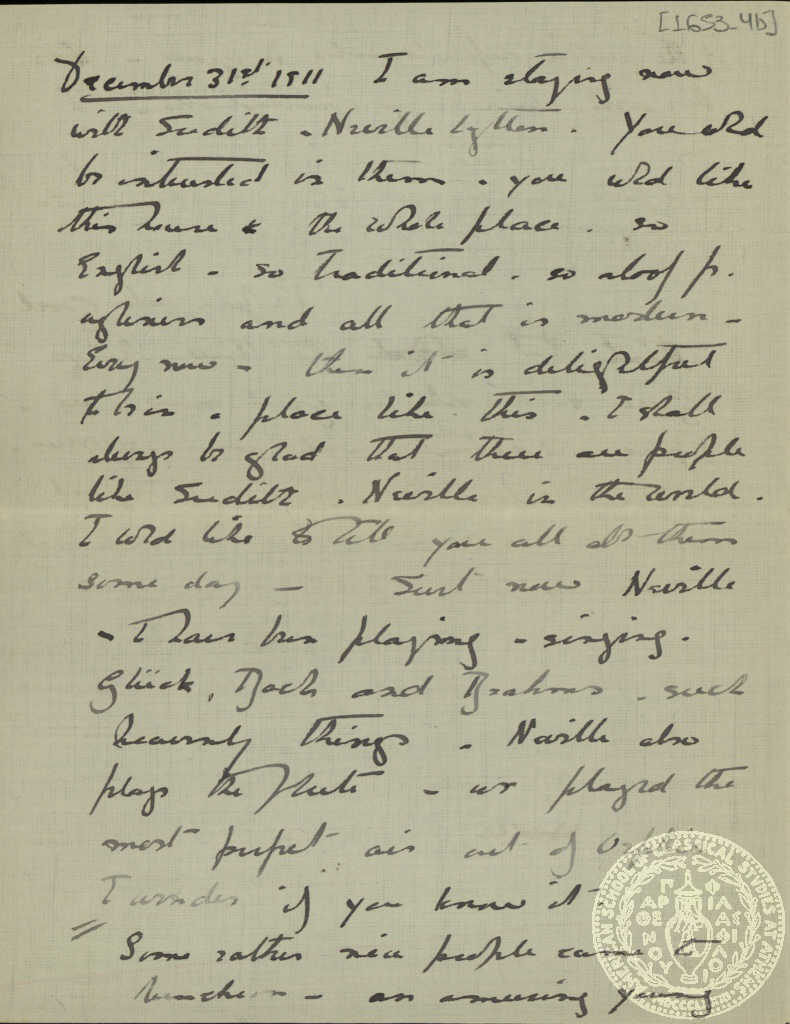 [1653_4b]
December 31st. 1911 I am staying now
with Judith - Neville Lytton. You wld
be interested in them - you wld like
this house & the whole place. so
English - so traditional. so aloof fr.
ugliness and all that is modern -
Every now - then it is delightful
to be in a place like this - I shall
always be glad that there are people
like Judith - Neville in the world.
I wld like to tell you all abt them
some day - Just now Neville
- I have been playing - singing.
Glück, Bach and Brahms - such
heavenly things - Neville also
plays the flute - we played the
most perfect air out of Orphée
I wonder if you know it.
Some rather nice people came to
luncheon - an amusing young
AMERICAN SCHOOL OF CLASSICAL STUDIES AT ATHENS
ΠΑΡΘΕΝΟΥ ΦΙΛΑΣ